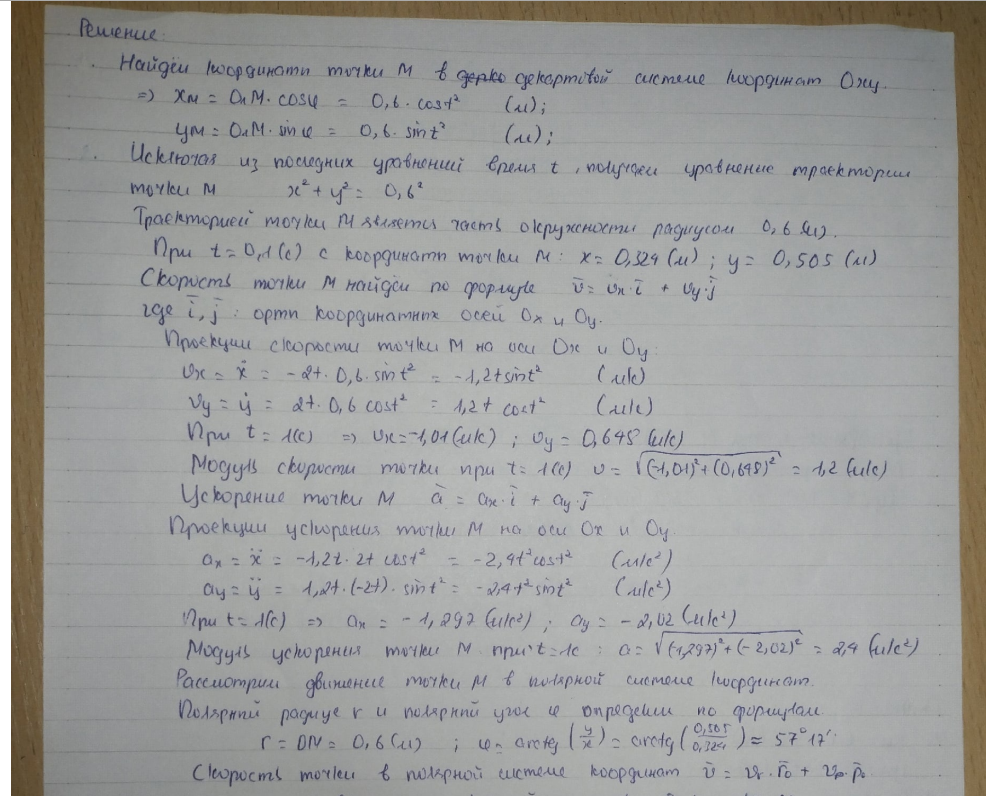 Решение:
Найдём координати точки М в декартовой системе координат Оху.
=> xм = ОлМ·cosφ = 0,6·cost² (м);
yм = ОлМ·sinφ = 0,6·sint² (м);
Исключая из последних уравнений время t, получаем уравнение траектории
точки М x² + y² = 0,6²
Траекторией точки М является часть окружности радиусом 0,6 (м).
При t = 0,1(с) с координати точки М: x = 0,324 (м); y = 0,505 (м)
Скорость точки М найдём по формуле v̄ = vx·ī + vy·j̄
где ī, j̄: орти координатних осей Ох и Оу.
Проекции скорости точки М на оси Ох и Оу:
vx = ẋ = -2t·0,6·sint² = -1,2tsint² (м/с)
vy = ẏ = 2t·0,6cost² = 1,2t cost² (м/с)
При t = 1(с) => vx = -1,01(м/с); vy = 0,648 (м/с)
Модуль скорости точки при t = 1(с) v = √((-1,01)²+(0,648)²) = 1,2 (м/с)
Ускорение точки М ā = ax·ī + ay·j̄
Проекции ускорения точки М на оси Ох и Оу.
ax = ẍ = -1,2t·2t cost² = -2,4t²cost² (м/с²)
ay = ÿ = 1,2t·(-2t)·sint² = -2,4t²sint² (м/с²)
При t = 1(с) => ax = -1,297 (м/с²); ay = -2,02 (м/с²)
Модуль ускорения точки М при t = 1с : a = √((-1,297)²+(-2,02)²) = 2,4 (м/с²)
Рассмотрим движение точки М в полярной системе координат.
Полярний радиус r и полярний угол φ определим по формулам.
r = ОМ = 0,6(м) ; φ = arctg(y/x) = arctg(0,505/0,324) ≈ 57°17'.
Скорость точки в полярной системе координат v̄ = vr·r̄₀ + vp·p̄₀